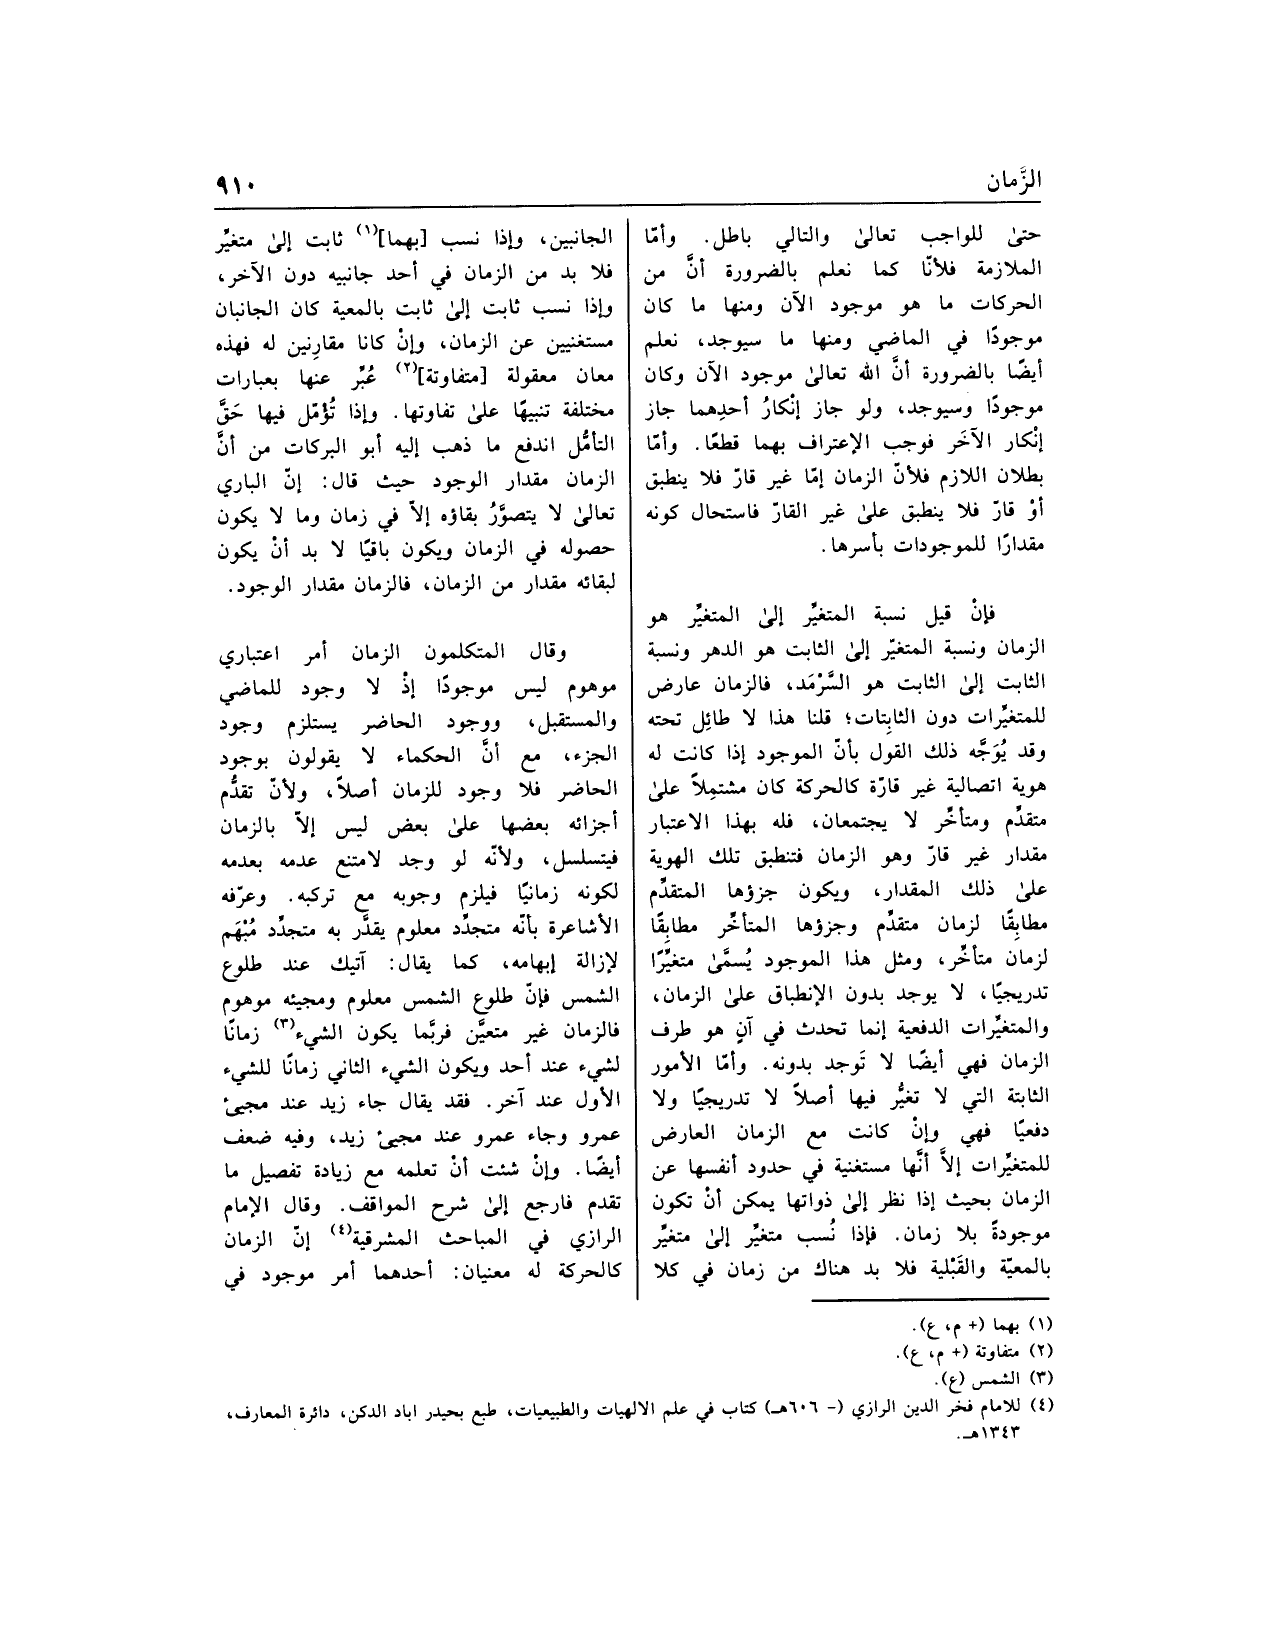 الزَّمان
٩١٠
حتىٰ للواجب تعالىٰ والتالي باطل. وأمّا
الملازمة فلأنّا كما نعلم بالضرورة أنَّ من
الحركات ما هو موجود الآن ومنها ما كان
موجودًا في الماضي ومنها ما سيوجد، نعلم
أيضًا بالضرورة أنَّ الله تعالىٰ موجود الآن وكان
موجودًا وسيوجد، ولو جاز إنْكارُ أحدِهما جاز
إنْكار الآخَر فوجب الإعتراف بهما قطعًا. وأمّا
بطلان اللازم فلأنّ الزمان إمّا غير قارّ فلا ينطبق
أوْ قارّ فلا ينطبق علىٰ غير القارّ فاستحال كونه
مقدارًا للموجودات بأسرها.
فإنْ قيل نسبة المتغيِّر إلىٰ المتغيِّر هو
الزمان ونسبة المتغيّر إلىٰ الثابت هو الدهر ونسبة
الثابت إلىٰ الثابت هو السَّرْمَد، فالزمان عارض
للمتغيِّرات دون الثابِتات؛ قلنا هذا لا طائِل تحته
وقد يُوَجَّه ذلك القول بأنّ الموجود إذا كانت له
هوية اتصالية غير قارّة كالحركة كان مشتمِلاً علىٰ
متقدِّم ومتأخِّر لا يجتمعان، فله بهذا الاعتبار
مقدار غير قارّ وهو الزمان فتنطبق تلك الهوية
علىٰ ذلك المقدار، ويكون جزؤها المتقدِّم
مطابِقًا لزمان متقدِّم وجزؤها المتأخِّر مطابِقًا
لزمان متأخِّر، ومثل هذا الموجود يُسمَّىٰ متغيِّرًا
تدريجيًا، لا يوجد بدون الإنطباق علىٰ الزمان،
والمتغيِّرات الدفعية إنما تحدث في آنٍ هو طرف
الزمان فهي أيضًا لا تَوجد بدونه. وأمّا الأمور
الثابتة التي لا تغيُّر فيها أصلاً لا تدريجيًا ولا
دفعيًا فهي وإنْ كانت مع الزمان العارض
للمتغيِّرات إلاَّ أنَّها مستغنية في حدود أنفسها عن
الزمان بحيث إذا نظر إلىٰ ذواتها يمكن أنْ تكون
موجودةً بلا زمان. فإذا نُسب متغيِّر إلىٰ متغيِّر
بالمعيّة والقَبْلية فلا بد هناك من زمان في كلا
الجانبين، وإذا نسب [بهما](١) ثابت إلىٰ متغيِّر
فلا بد من الزمان في أحد جانبيه دون الآخر،
وإذا نسب ثابت إلىٰ ثابت بالمعية كان الجانبان
مستغنيين عن الزمان، وإنْ كانا مقارِنين له فهذه
معان معقولة [متفاوتة](٢) عُبِّر عنها بعبارات
مختلفة تنبيهًا علىٰ تفاوتها. وإذا تُؤمّل فيها حَقَّ
التأمُّل اندفع ما ذهب إليه أبو البركات من أنَّ
الزمان مقدار الوجود حيث قال: إنّ الباري
تعالىٰ لا يتصوَّرُ بقاؤه إلاّ في زمان وما لا يكون
حصوله في الزمان ويكون باقيًا لا بد أنْ يكون
لبقائه مقدار من الزمان، فالزمان مقدار الوجود.
وقال المتكلمون الزمان أمر اعتباري
موهوم ليس موجودًا إذْ لا وجود للماضي
والمستقبل، ووجود الحاضر يستلزم وجود
الجزء، مع أنَّ الحكماء لا يقولون بوجود
الحاضر فلا وجود للزمان أصلاً، ولأنّ تقدُّم
أجزائه بعضها علىٰ بعض ليس إلاّ بالزمان
فيتسلسل، ولأنّه لو وجد لامتنع عدمه بعدمه
لكونه زمانيًا فيلزم وجوبه مع تركبه. وعرّفه
الأشاعرة بأنّه متجدِّد معلوم يقدَّر به متجدِّد مُبْهَم
لإزالة إبهامه، كما يقال: آتيك عند طلوع
الشمس فإنّ طلوع الشمس معلوم ومجيئه موهوم
فالزمان غير متعيَّن فربَّما يكون الشيء(٣) زمانًا
لشيء عند أحد ويكون الشيء الثاني زمانًا للشيء
الأول عند آخر. فقد يقال جاء زيد عند مجيئ
عمرو وجاء عمرو عند مجيئ زيد، وفيه ضعف
أيضًا. وإنْ شئت أنْ تعلمه مع زيادة تفصيل ما
تقدم فارجع إلىٰ شرح المواقف. وقال الإمام
الرازي في المباحث المشرقية(٤) إنّ الزمان
كالحركة له معنيان: أحدهما أمر موجود في
(١) بهما (+ م، ع).
(٢) متفاوتة (+ م، ع).
(٣) الشمس (ع).
(٤) للامام فخر الدين الرازي (- ٦٠٦هـ) كتاب في علم الالهيات والطبيعيات، طبع بحيدر اباد الدكن، دائرة المعارف،
١٣٤٣هـ.